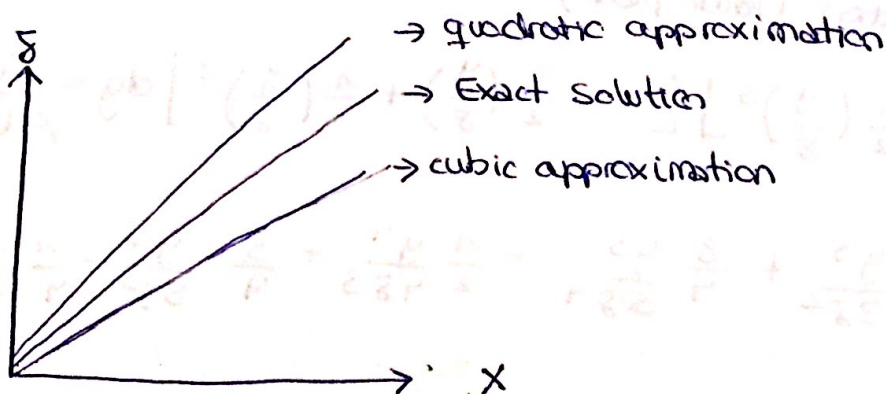 δ
→ quadratic approximation
→ Exact solution
→ cubic approximation
X